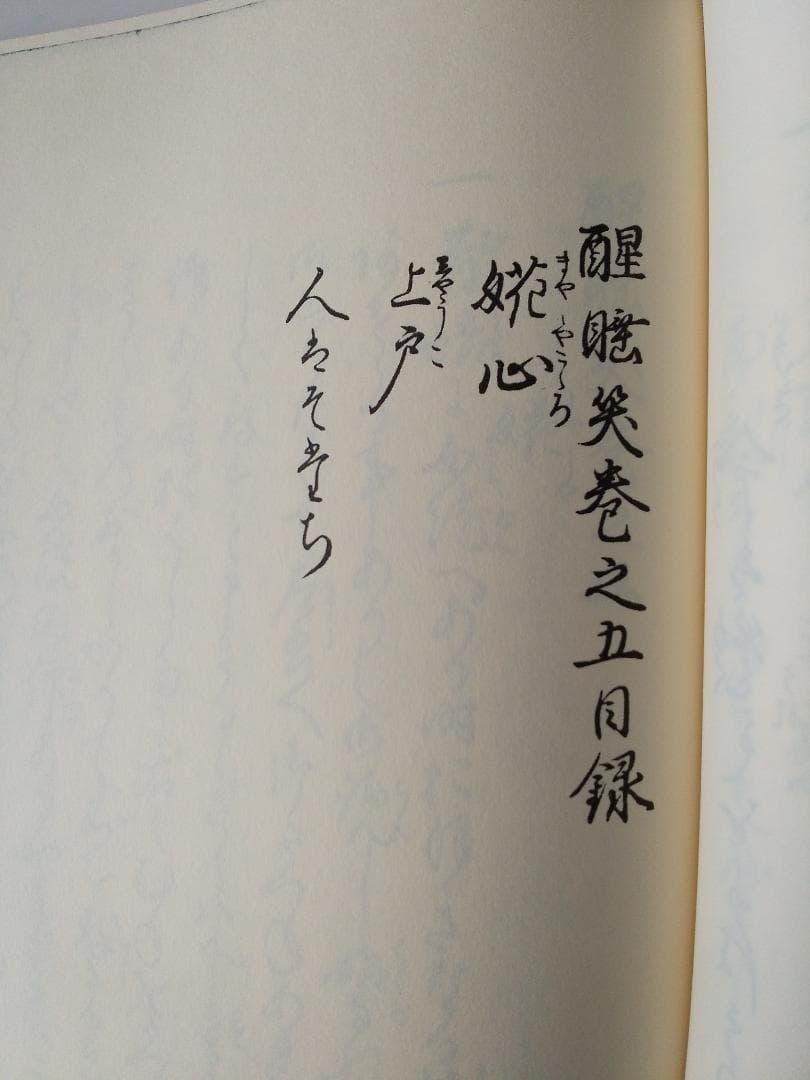 醒睡笑巻之五目録
婲心
きやしやこゝろ
上戸
しやうこ
人はそたち